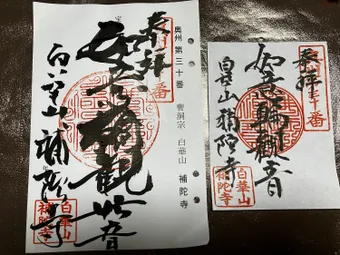 奥州第三十番
曹洞宗 白華山 補陀寺
奉拝
如意輪観世音
白華山補陀寺
白華山
補陀寺
奉拝
如意輪観音
白華山補陀寺
三十番
白華山
補陀寺